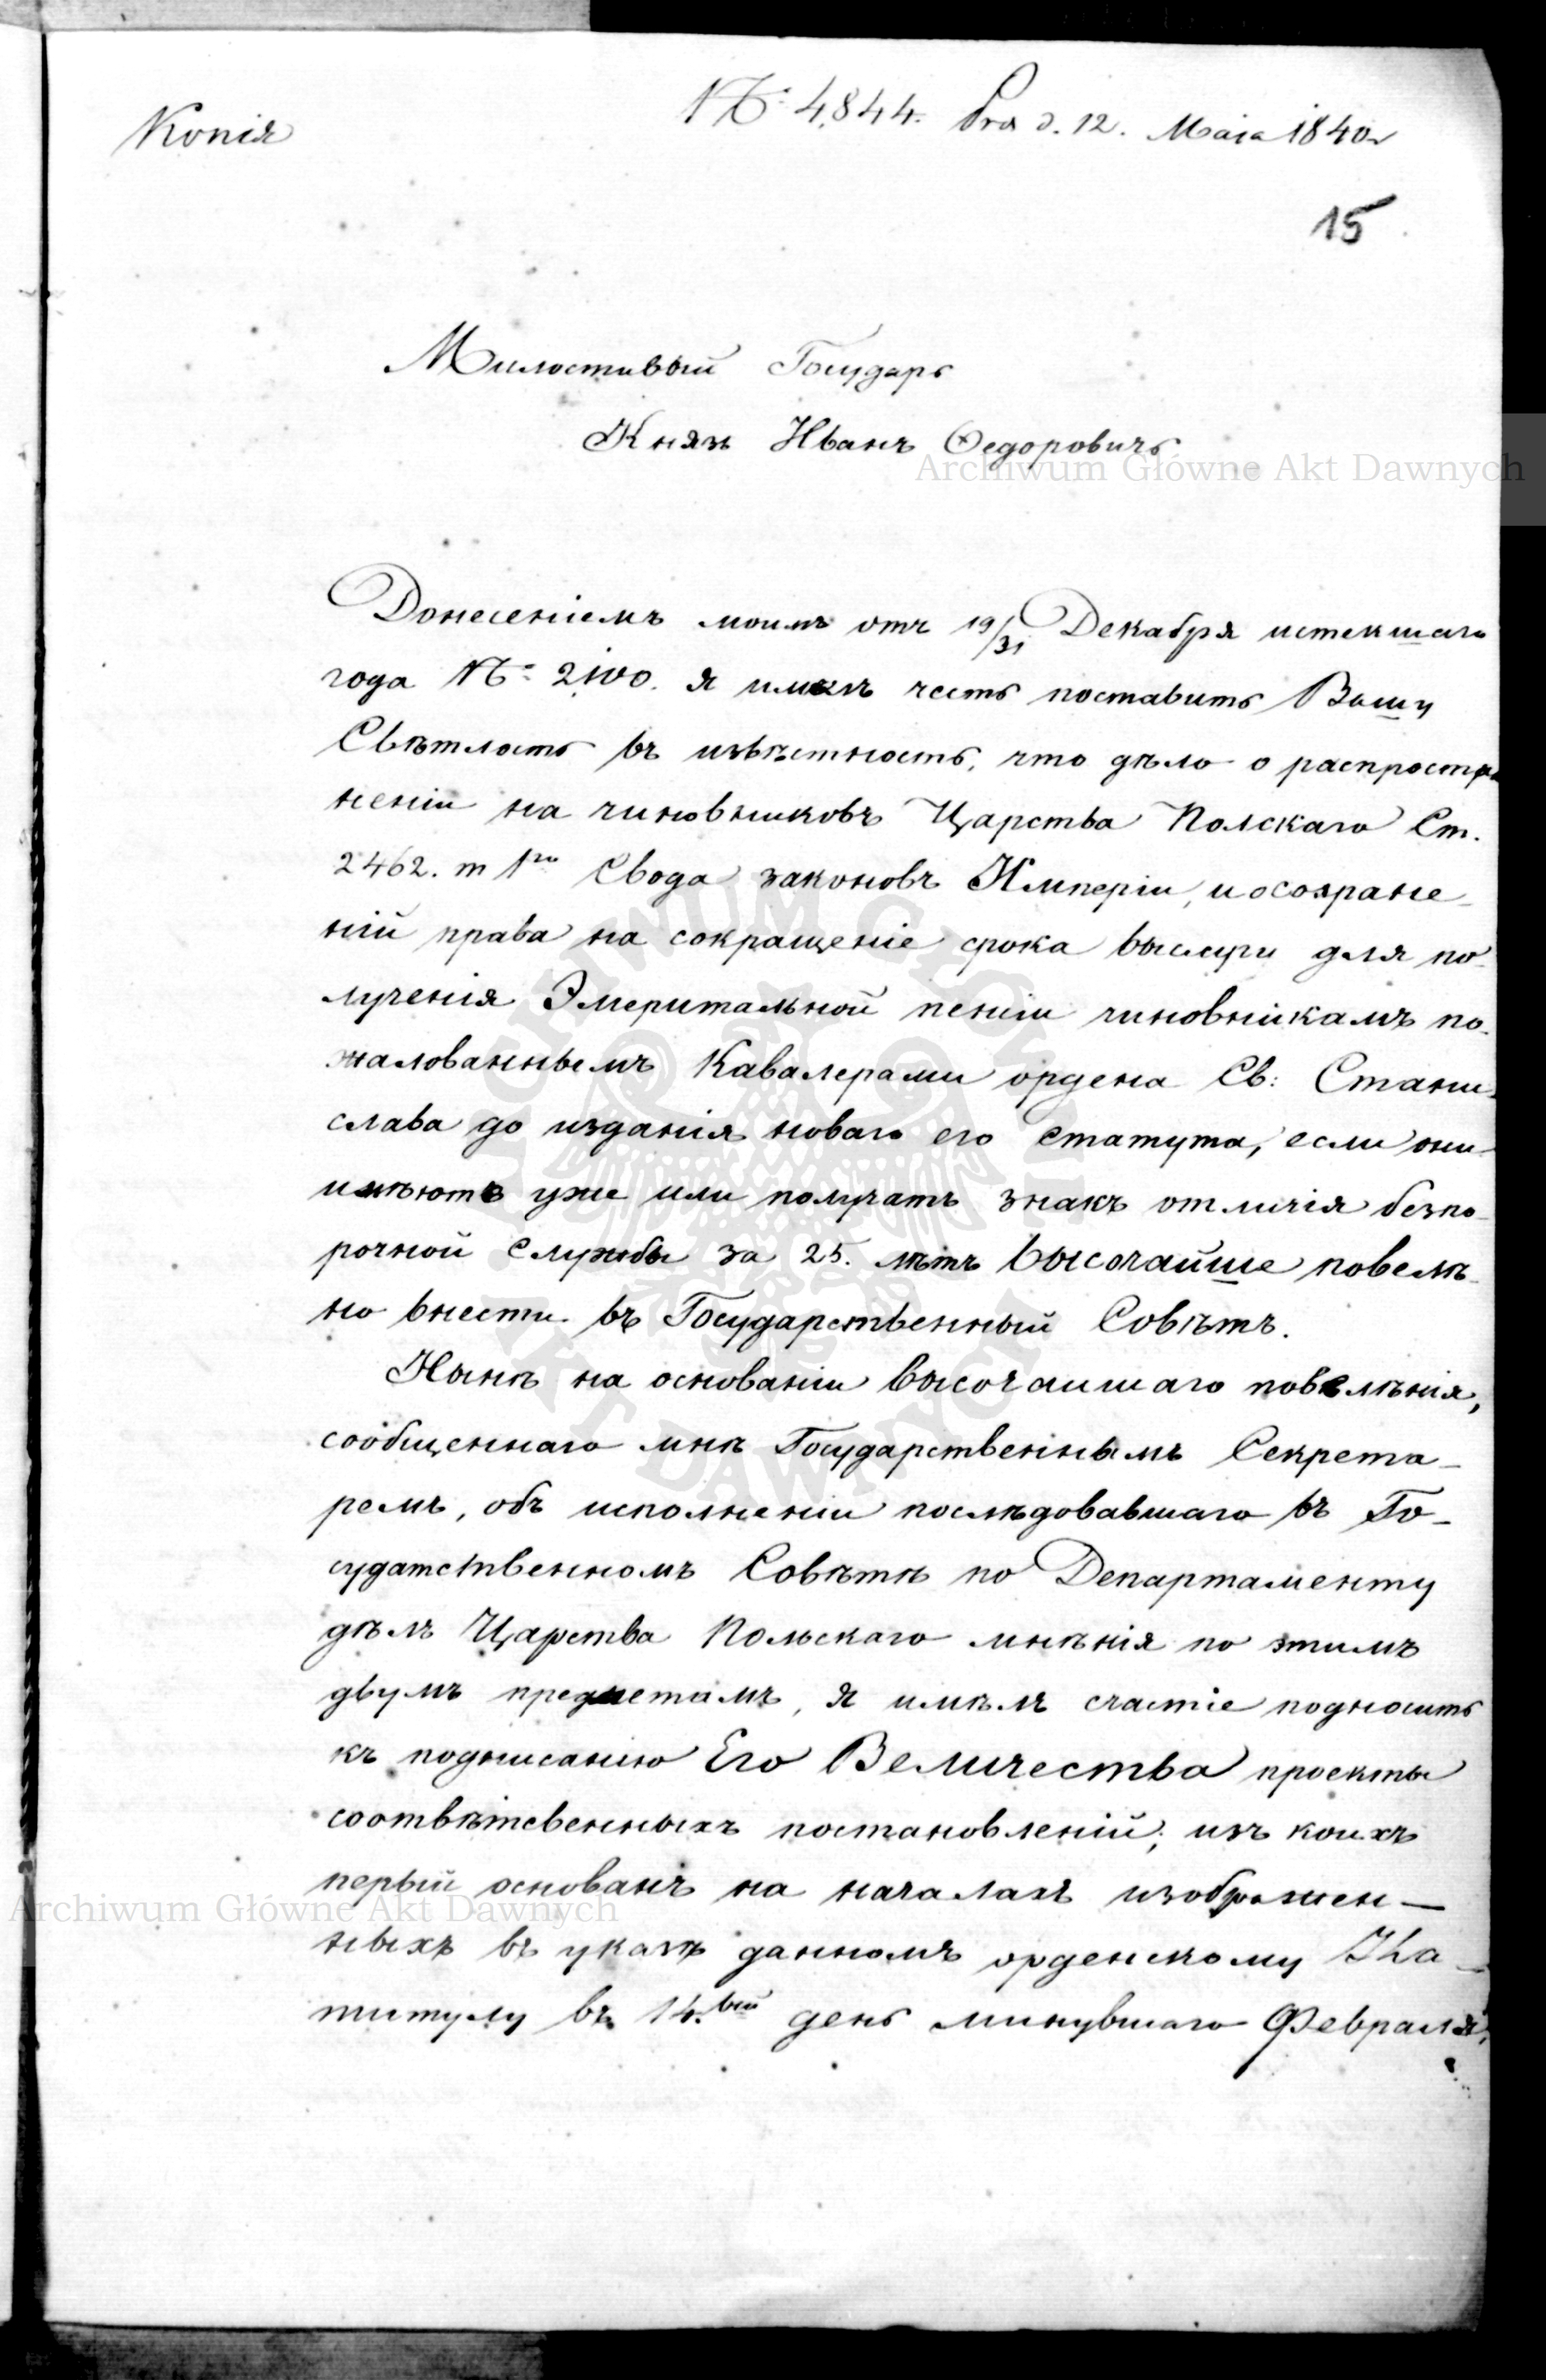 Копія
№ 4,844. Pra d. 12. Maia 1840
15
Милостивый Государь
Князь Иванъ Федоровичъ
Донесеніемъ моимъ отъ 19/31 Декабря истекшаго
года №: 2100. я имелъ честь поставить Вашу
Свѣтлость въ извѣстность, что дѣло о распростра
неніи на чиновниковъ Царства Полскаго Ст.
2462. т 1го Свода законовъ Имперіи, и о сохране-
ній права на сокращеніе срока выслуги для по-
лученія Эмеритальной пенсіи чиновнікамъ по-
жалованнымъ Кавалерами ордена Св: Стани-
слава до изданія новаго его статута, если они
имѣютъ уже или получатъ знакъ отличія безпо-
рочной службы за 25. лѣтъ Высочайше повелѣ-
но внести въ Государственный Совѣтъ.
Нынѣ на основаніи Высочаишаго повелѣнія,
сообщеннаго мнѣ Государственнымъ Секрета-
ремъ, объ исполненіи послѣдовавшаго въ Го-
сударственномъ Совѣтѣ по Департаменту
дѣлъ Царства Польскаго мнѣнія по этимъ
двумъ предметамъ, я имѣлъ счастіе подносить
къ подписанію Его Величества проекты
соотвѣтсвенныхъ постановленій; изъ коихъ
первый основанъ на началахъ изображен-
ныхъ въ указѣ данномъ орденскому Ка-
питулу въ 14.вый день минувшаго Февраля,
Archiwum Główne Akt Dawnych
Archiwum Główne Akt Dawnych
ARCHIWUM GŁÓWNE AKT DAWNYCH